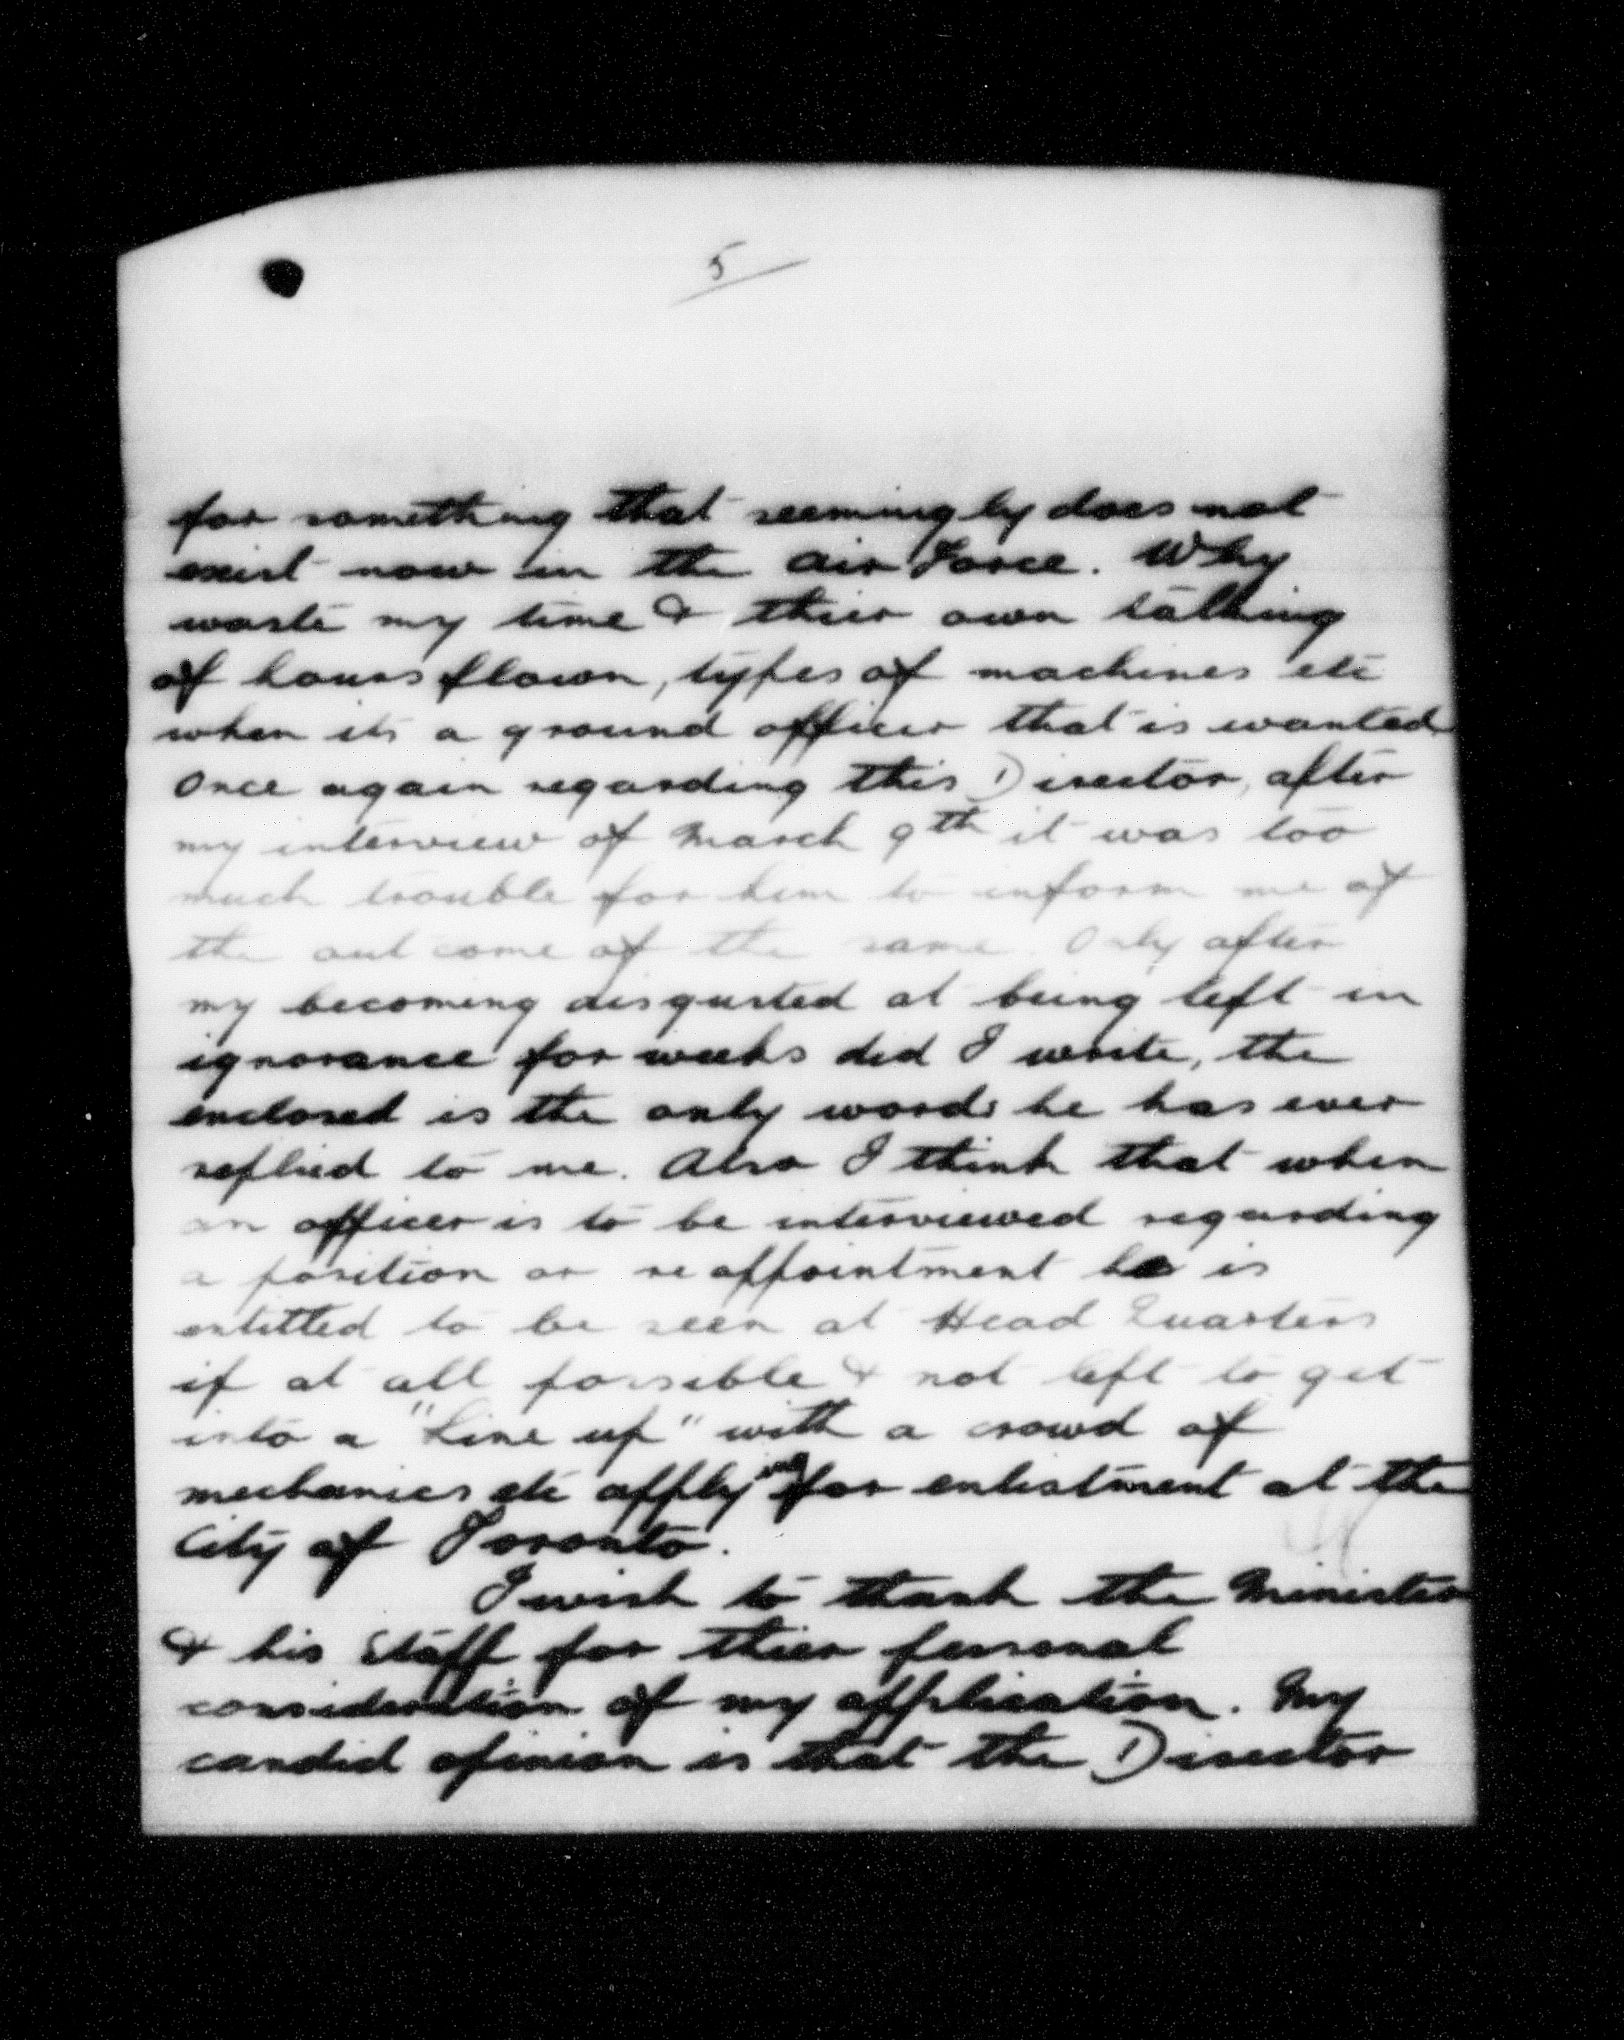 5
for something that seemingly does not
exist now in the Air Force. Why
waste my time & thier own talking
of hours flown, types of machines etc
when its a ground officer that is wanted.
Once again regarding this Director, after
my interview of March 9th it was too
much trouble for him to inform me of
the out come of the same. Only after
my becoming disgusted at being left in
ignorance for weeks did I write, the
enclosed is the only word he has ever
replied to me. Also I think that when
an officer is to be interviewed regarding
a position or re appointment he is
entitled to be seen at Head Quarters
if at all possible & not left to get
into a "Line up" with a crowd of
mechanics etc applying for enlistment at the
City of Toronto.
I wish to thank the Minister
& his Staff for thier personal
consideration of my application. My
candid opinion is that the Director